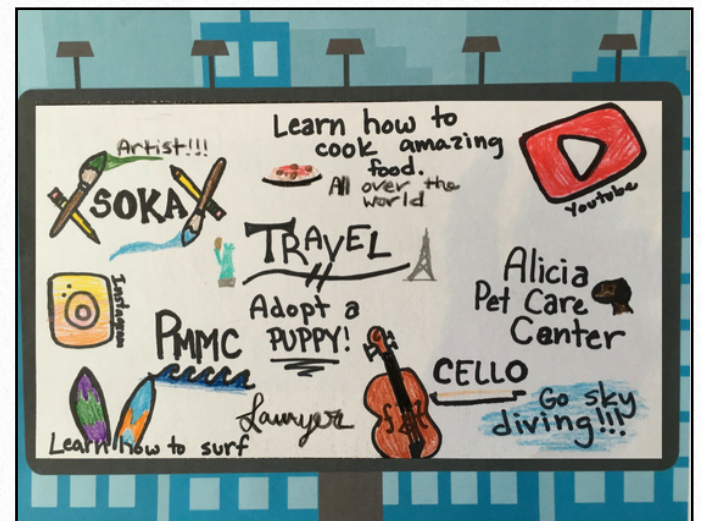 Artist!!!
SOKA
Learn how to
cook amazing
food.
All over the
world
Youtube
TRAVEL
Instagram
PMMC
Adopt a
PUPPY!
Alicia
Pet Care
Center
CELLO
Lawyer
Go sky
diving!!!
Learn how to surf